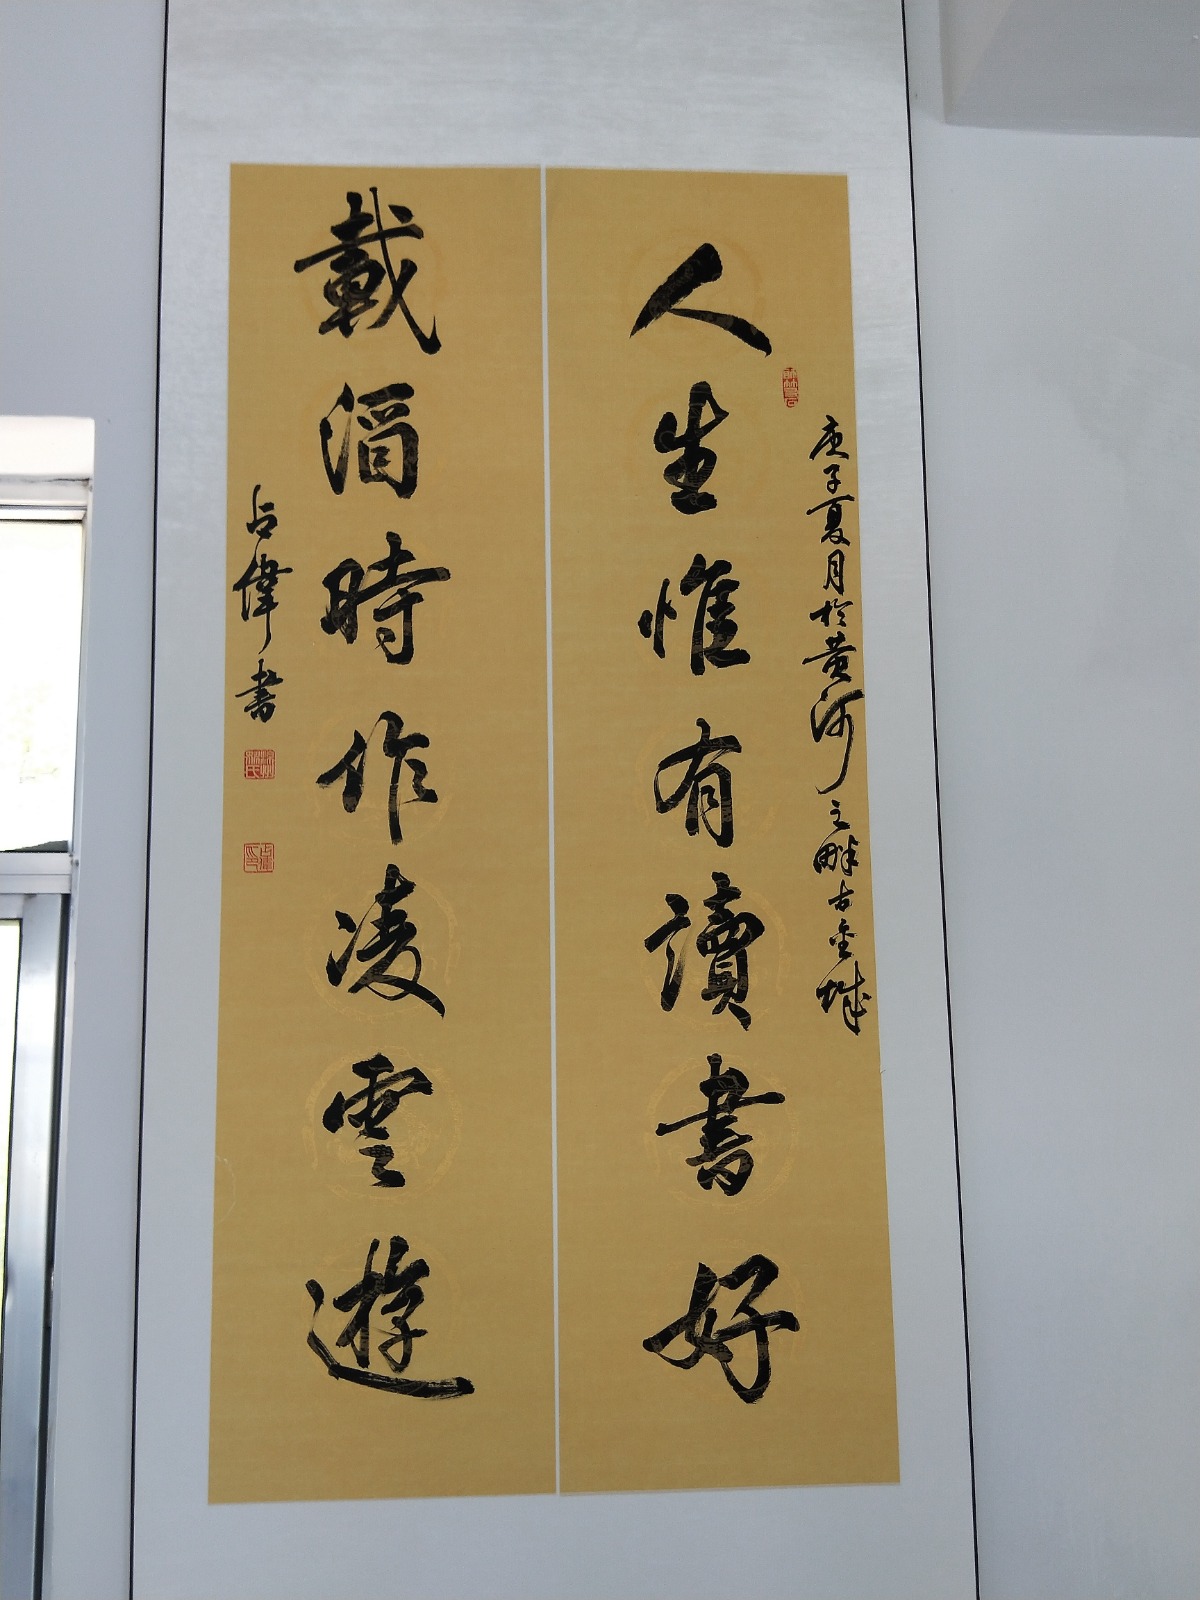 庚子夏月於黄河之畔古金城
人生惟有讀書好
載酒時作凌雲遊
占偉書